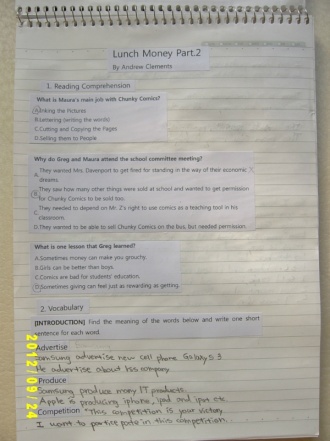 Lunch Money Part.2
By Andrew Clements
1. Reading Comprehension
What is Maura's main job with Chunky Comics?
A.Inking the Pictures
B.Lettering (writing the words)
C.Cutting and Copying the Pages
D.Selling them to People
Why do Greg and Maura attend the school committee meeting?
A. They wanted Mrs. Davenport to get fired for standing in the way of their economic dreams.
B. They saw how many other things were sold at school and wanted to get permission
for Chunky Comics to be sold too.
C. They needed to depend on Mr. Z's right to use comics as a teaching tool in his
classroom.
D.They wanted to be able to sell Chunky Comics on the bus, but needed permission.
What is one lesson that Greg learned?
A.Sometimes money can make you grouchy.
B.Girls can be better than boys.
C.Comics are bad for students' education.
D.Sometimes giving can feel just as rewarding as getting.
2. Vocabulary
[INTRODUCTION] Find the meaning of the words below and write one short
sentence for each word.
Advertise
Samsung advertise new cell phone Galaxy S 3.
He advertise about his company
Produce
Samsung produce many IT products.
Apple is producing iphone, ipad and ipod etc
Competition "This competition is your victory
I want to participate in this competition.
2012/09/24